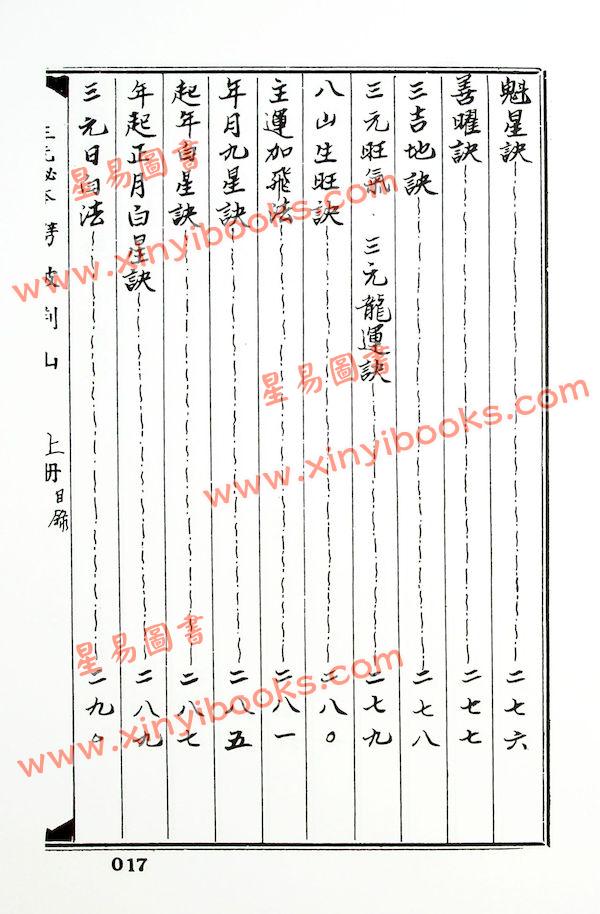 魁星訣 二七六
善曜訣 二七七
三吉地訣 二七八
三元旺氣．三元龍運訣 二七九
八山生旺訣 二八〇
主運加飛法 二八一
年月九星訣 二八五
起年白星訣 二八七
年起正月白星訣 二八九
三元日白法 二九〇
三元 本 山 上册目錄
017
星易圖書
www.xinyibooks.com
星易圖書
www.xinyibooks.com
星易圖書
www.xinyibooks.com